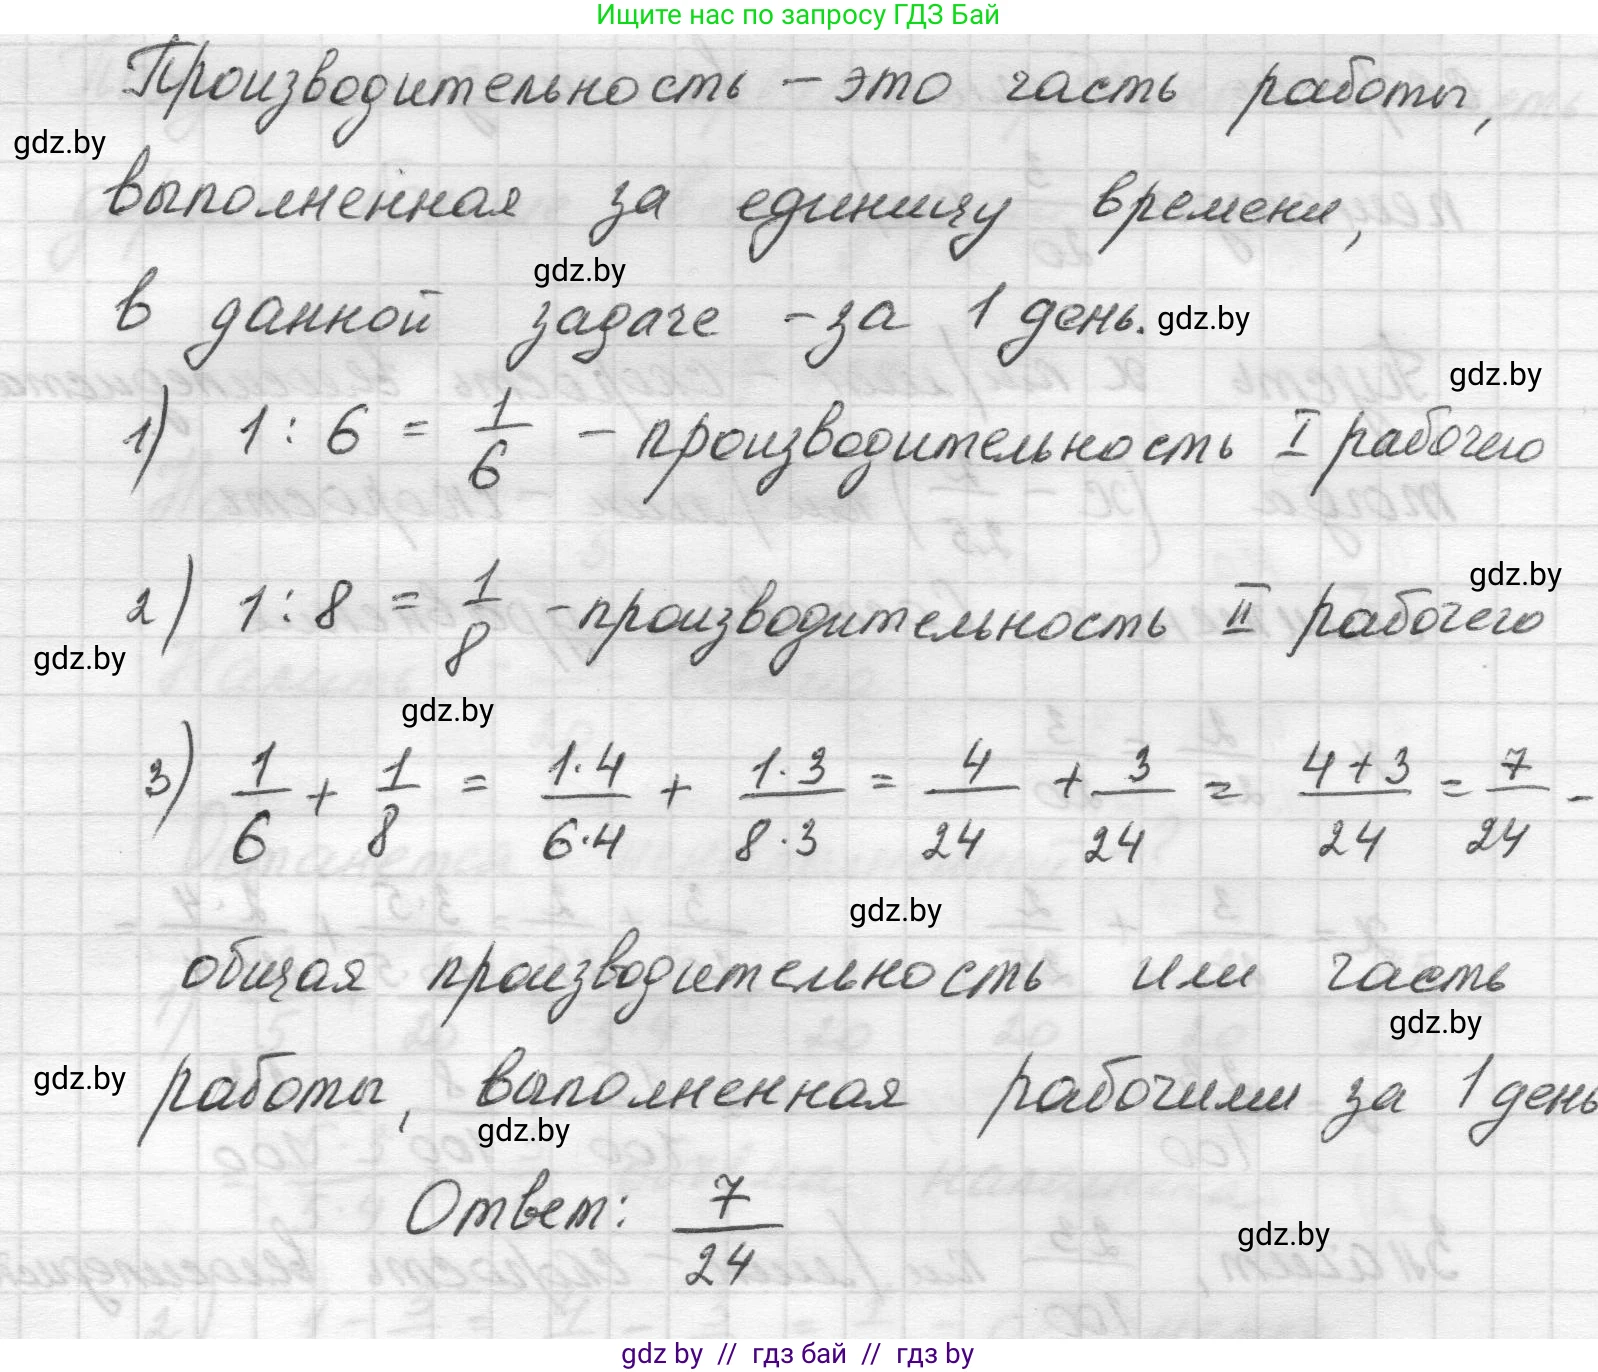 Ищите нас по запросу ГДЗ Бай
Производительность – это часть работы,
gdz.by
выполненная за единицу времени,
gdz.by
в данной задаче – за 1 день.
gdz.by
gdz.by
1) 1 : 6 = 1/6 – производительность I рабочего
gdz.by
2) 1 : 8 = 1/8 – производительность II рабочего
gdz.by
gdz.by
3) 1/6 + 1/8 = 1·4/6·4 + 1·3/8·3 = 4/24 + 3/24 = 4+3/24 = 7/24 –
gdz.by
общая производительность или часть
gdz.by
gdz.by
работы, выполненная рабочими за 1 день
gdz.by
Ответ: 7/24
gdz.by
gdz by // гдз бай // гдз by